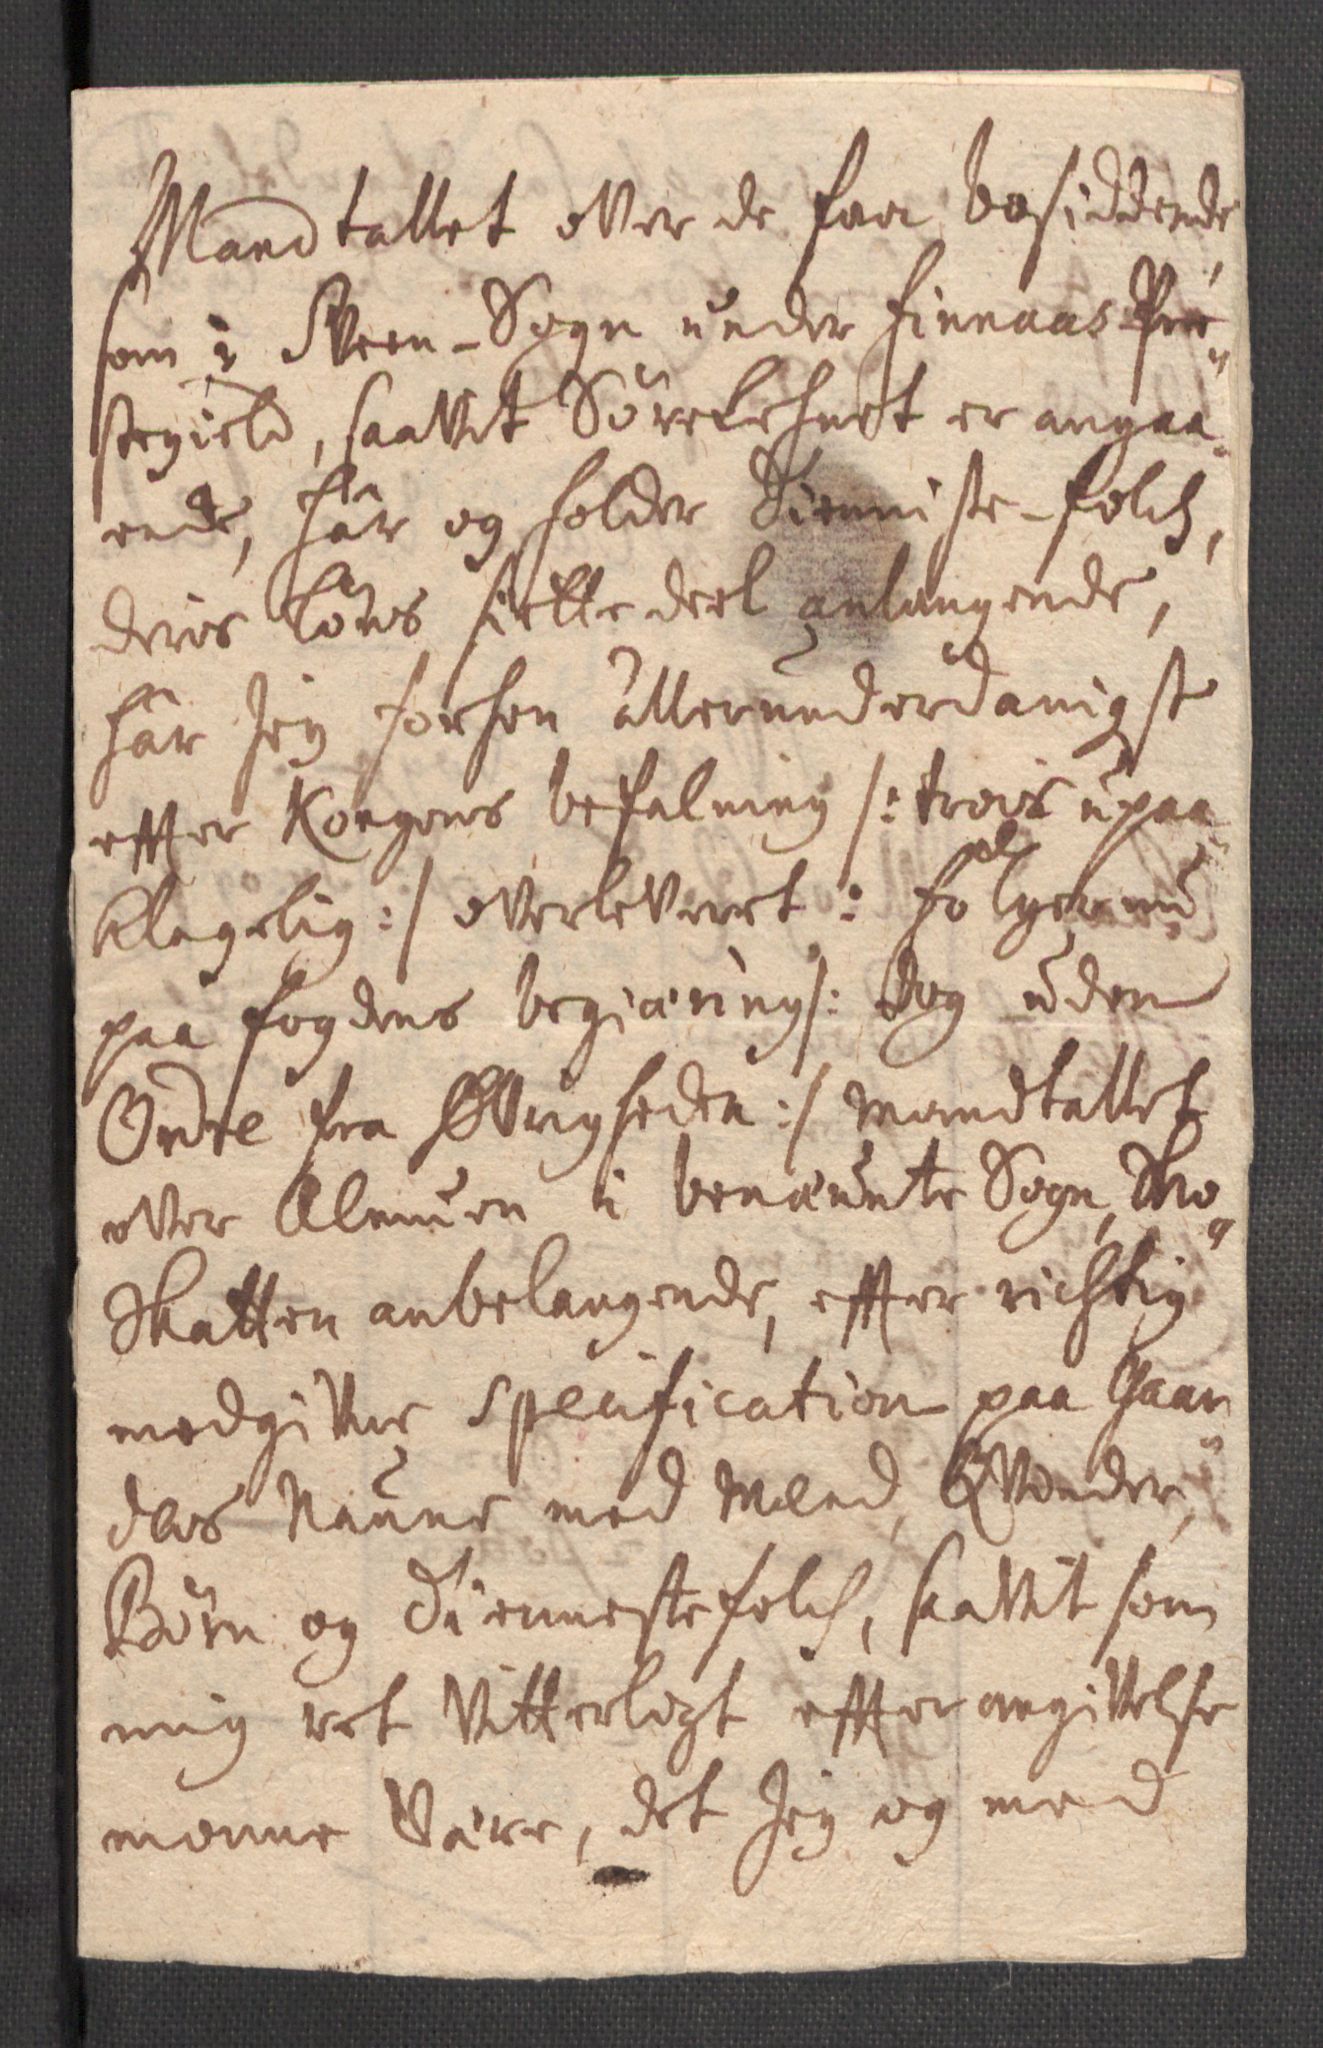 Mandtallet over de faa bosiddende,
som i Sveen-Sogn under Finnaas Præ=
stegield, saavit Sörelehnet er angaa=
ende, har og holder Tienniste-folch,
deris löns siette deel anlangende,
har Jeg forhen allerunderdanigst
effter Kongens befalning /: troer upaa=
klagelig :/ overleveret : Fölger nu
paa fogdens begiæring /: dog uden
Ordre fra Øvrigheden :/ Mandtallet
over Almuen i benæunte Sogn, Sko=
Skatten anbelangende, effter richtig
medgivne Specification paa Gaar=
dens Naune med Mænd, Qvinder,
Börn og Tiennestefolch, saavit som
mig ret vitterligt effter angivelse
monne være, det Jeg og med